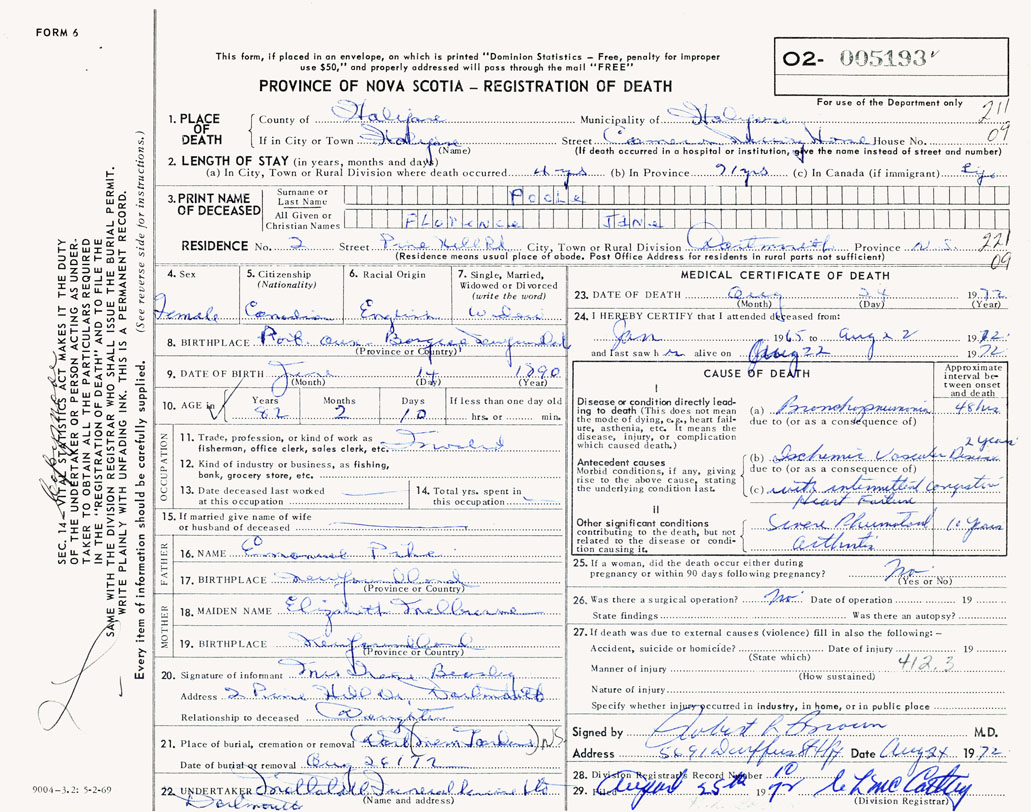 FORM 6
This form, if placed in an envelope, on which is printed "Dominion Statistics – Free, penalty for improper
use $50," and properly addressed will pass through the mail "FREE"
O2- 005193
For use of the Department only
PROVINCE OF NOVA SCOTIA – REGISTRATION OF DEATH
211
09
1. PLACE OF DEATH
County of Halifax Municipality of Halifax
If in City or Town Halifax Street Cameron Nursing Home House No.
(Name) (If death occurred in a hospital or institution, give the name instead of street and number)
2. LENGTH OF STAY (in years, months and days)
(a) In City, Town or Rural Division where death occurred 4 yrs (b) In Province 71 yrs (c) In Canada (if immigrant)
3. PRINT NAME OF DECEASED
Surname or Last Name POOLE
All Given or Christian Names FLORENCE JANE
RESIDENCE No. 2 Street Pine Hill Rd City, Town or Rural Division Dartmouth Province N.S.
221
09
(Residence means usual place of abode. Post Office Address for residents in rural parts not sufficient)
4. Sex
Female
5. Citizenship
(Nationality)
Canadian
6. Racial Origin
English
7. Single, Married,
Widowed or Divorced
(write the word)
Widow
8. BIRTHPLACE Port aux Basques Newfoundland
(Province or Country)
9. DATE OF BIRTH June 14 1890
(Month) (Day) (Year)
10. AGE in
Years Months Days If less than one day old
82 2 10 hrs. or min.
OCCUPATION
11. Trade, profession, or kind of work as
fisherman, office clerk, sales clerk, etc.
12. Kind of industry or business, as fishing,
bank, grocery store, etc.
13. Date deceased last worked
at this occupation
14. Total yrs. spent in
this occupation
15. If married give name of wife
or husband of deceased
FATHER
16. NAME Emanuel Pike
17. BIRTHPLACE Newfoundland
(Province or Country)
MOTHER
18. MAIDEN NAME Elizabeth
19. BIRTHPLACE Newfoundland
(Province or Country)
20. Signature of informant Mrs Irene Beasley
Address 2 Pine Hill Dr Dartmouth
Relationship to deceased Daughter
21. Place of burial, cremation or removal N.S.
Date of burial or removal Aug 26 1972
22. UNDERTAKER Funeral
(Name and address)
Dartmouth
MEDICAL CERTIFICATE OF DEATH
23. DATE OF DEATH Aug 24 1972
(Month) (Day) (Year)
24. I HEREBY CERTIFY that I attended deceased from:
Jan 1965 to Aug 22 1972
and last saw her alive on Aug 22 1972
CAUSE OF DEATH
Approximate
interval be-
tween onset
and death
I
Disease or condition directly lead-
ing to death (This does not mean
the mode of dying, e.g., heart fail-
ure, asthenia, etc. It means the
disease, injury, or complication
which caused death.)
(a) Bronchopneumonia 48 hrs
due to (or as a consequence of)
Antecedent causes
Morbid conditions, if any, giving
rise to the above cause, stating
the underlying condition last.
(b) Ischemic Vascular Disease 2 years
due to (or as a consequence of)
(c) with intermittent congestive
Heart Failure
II
Other significant conditions
contributing to the death, but not
related to the disease or condi-
tion causing it.
Severe Rheumatoid 10 years
arthritis
25. If a woman, did the death occur either during
pregnancy or within 90 days following pregnancy? No
(Yes or No)
26. Was there a surgical operation? No. Date of operation 19
State findings Was there an autopsy?
27. If death was due to external causes (violence) fill in also the following: –
Accident, suicide or homicide? Date of injury 19
(State which)
412.3
Manner of injury
(How sustained)
Nature of injury
Specify whether injury occurred in industry, in home, or in public place
Signed by Robert L Brown M.D.
Address 5691 Duffus St Hfx Date Aug 24 1972
28. Division Registrar's Record Number
29. Filed August 25th 1972
(Division Registrar)
SEC. 14 – VITAL STATISTICS ACT MAKES IT THE DUTY
OF THE UNDERTAKER OR PERSON ACTING AS UNDER-
TAKER TO OBTAIN ALL THE PARTICULARS REQUIRED
IN THE "REGISTRATION OF DEATH" AND TO FILE THE
SAME WITH THE DIVISION REGISTRAR WHO SHALL ISSUE THE BURIAL PERMIT.
WRITE PLAINLY WITH UNFADING INK. THIS IS A PERMANENT RECORD.
Every item of information should be carefully supplied. (See reverse side for instructions.)
9004-3.2: 5-2-69